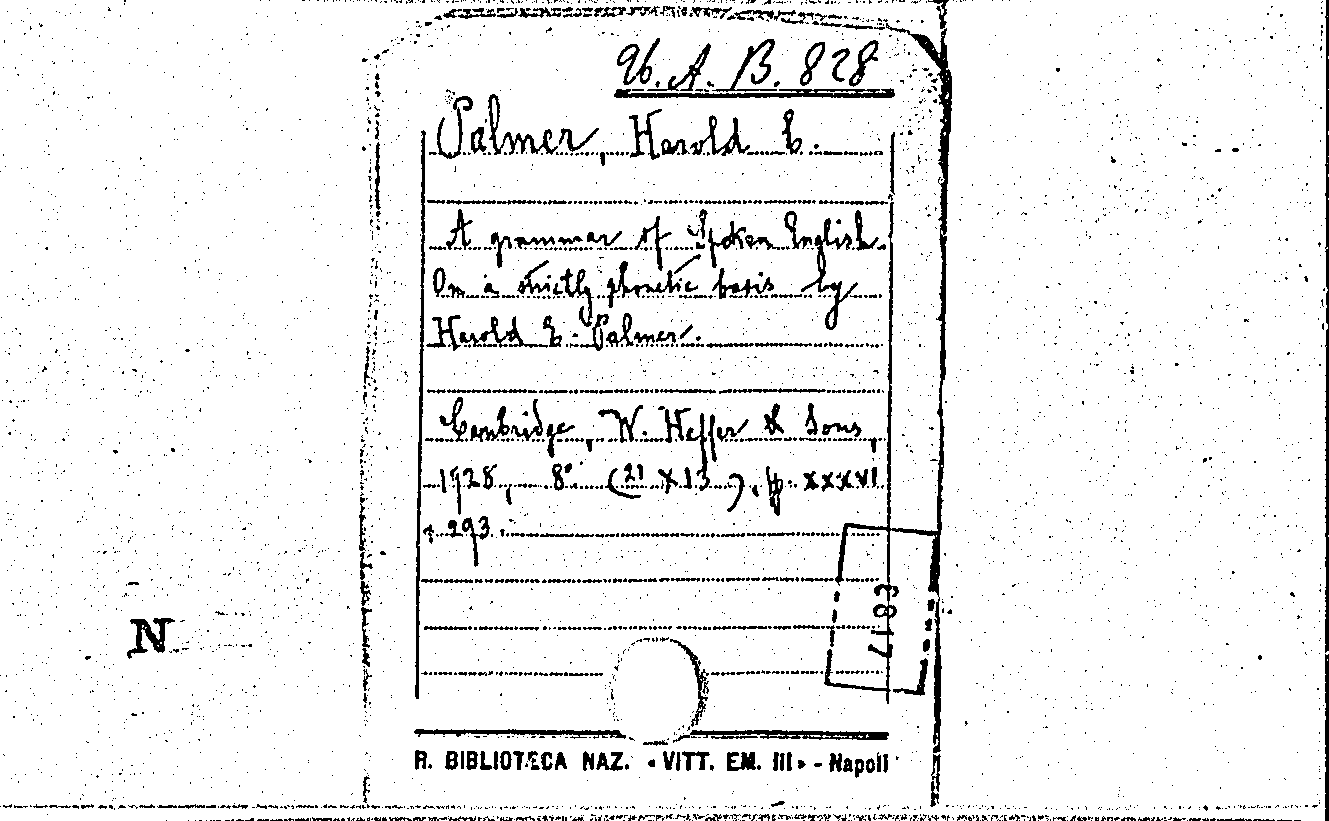 96. A. B. 828
Palmer, Harold E.
A grammar of Spoken English
On a strictly phonetic basis by
Harold E. Palmer.
Cambridge, W. Heffer & Sons,
1928, 8° (21 X 13), pp. XXXVI
+ 293.
N
R. BIBLIOTECA NAZ. «VITT. EM. III» - Napoli